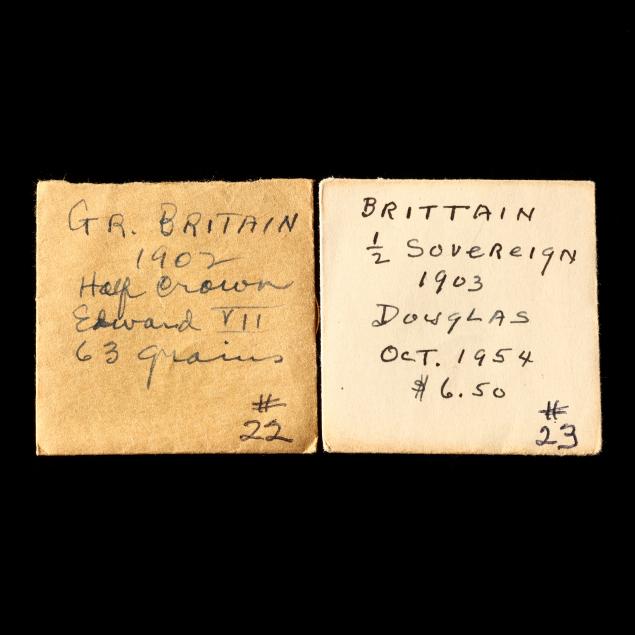 GR. BRITAIN
1902
Half Crown
Edward VII
63 grains
#
22
BRITTAIN
½ SOVEREIGN
1903
DOUGLAS
OCT. 1954
$6.50
#
23